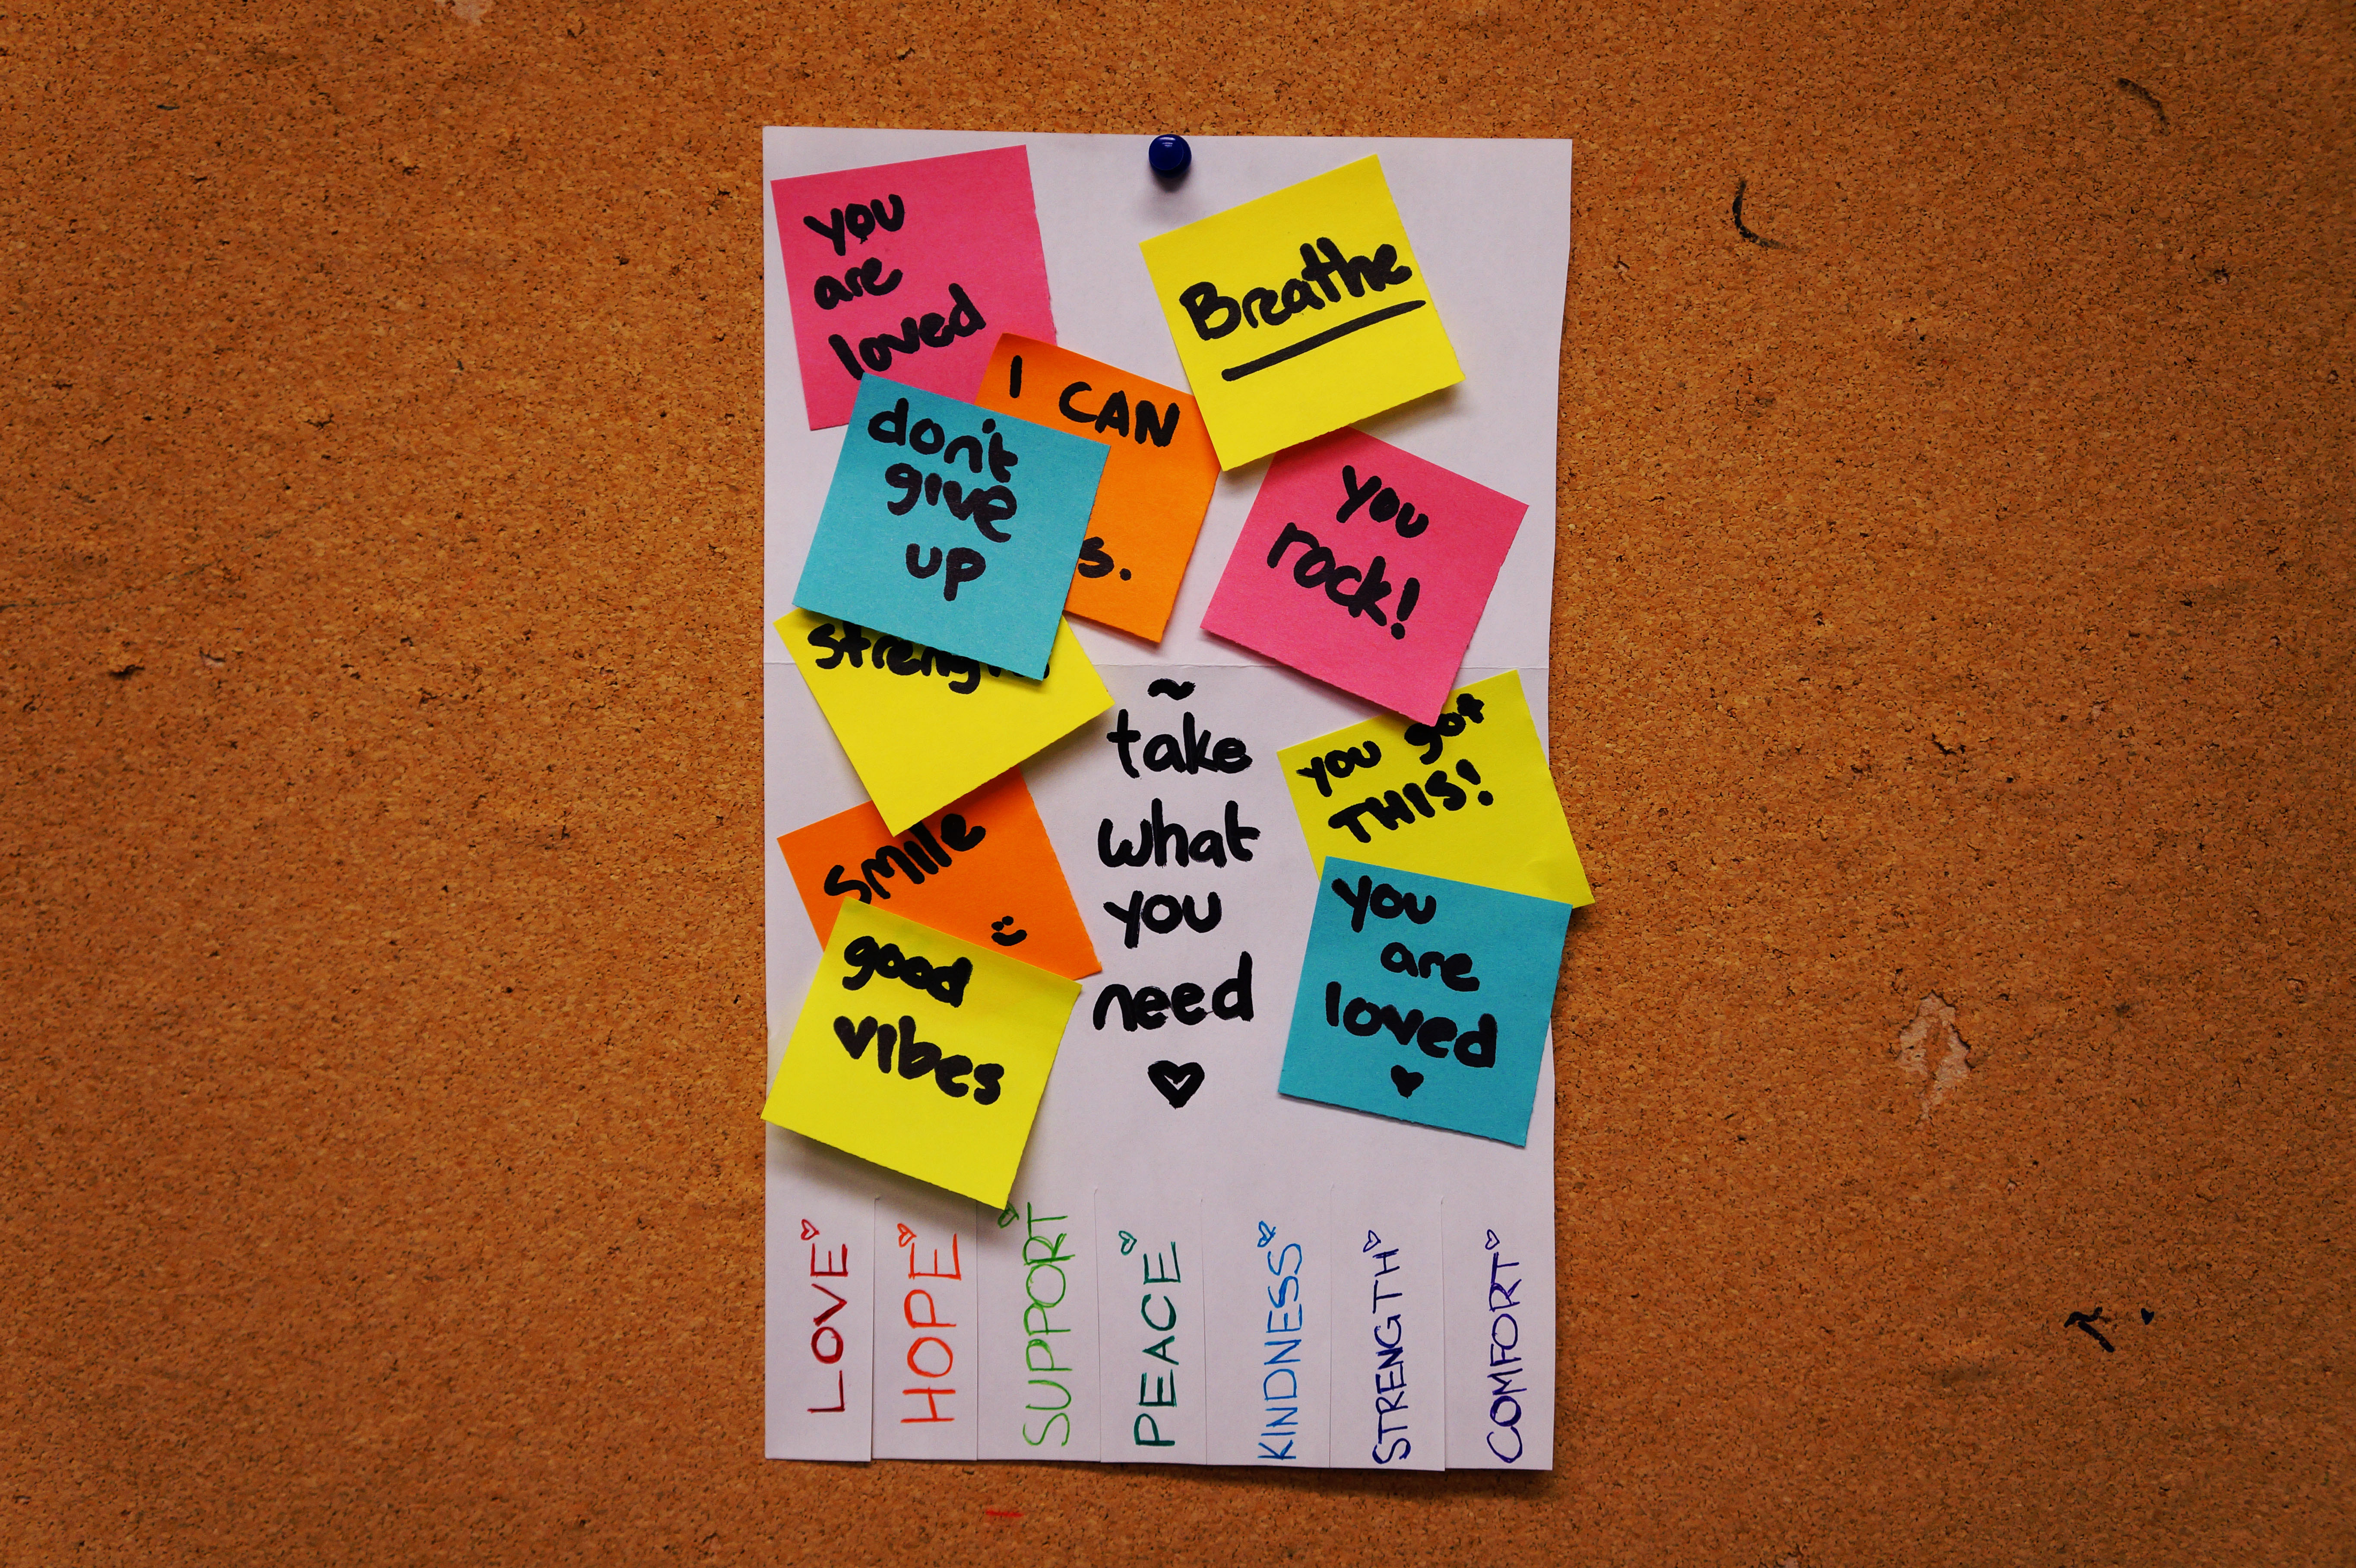 you
are
loved
Breathe
I CAN
don't
give
up
s.
you
rock!
strength
~
take
what
you
need
you got
THIS!
smile
good
vibes
you
are
loved
LOVE
HOPE
SUPPORT
PEACE
KINDNESS
STRENGTH
COMFORT